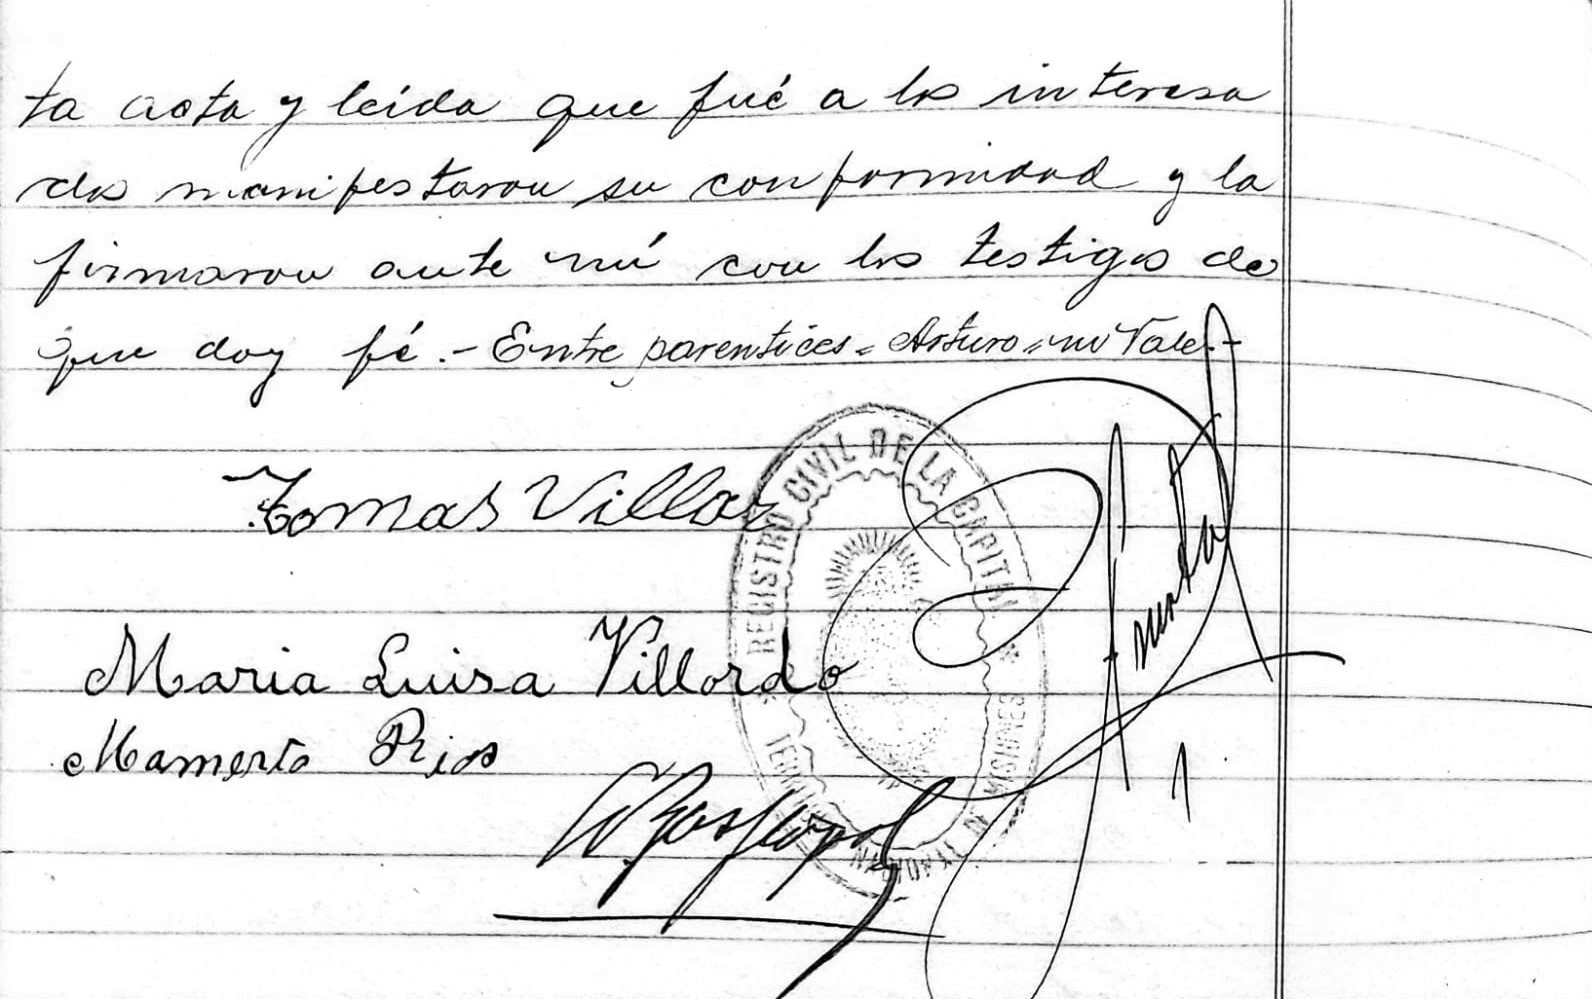 ta acta y leída que fué a los interesa
dos manifestaron su conformidad y la
firmaron ante mí con los testigos de
que doy fé.- Entre parentices = Arturo = no Vale.-
Tomas Villar
REGISTRO CIVIL DE LA CAPITAL
Maria Luisa Villordo
Mamerto Rios
NACIONAL D MISIONES